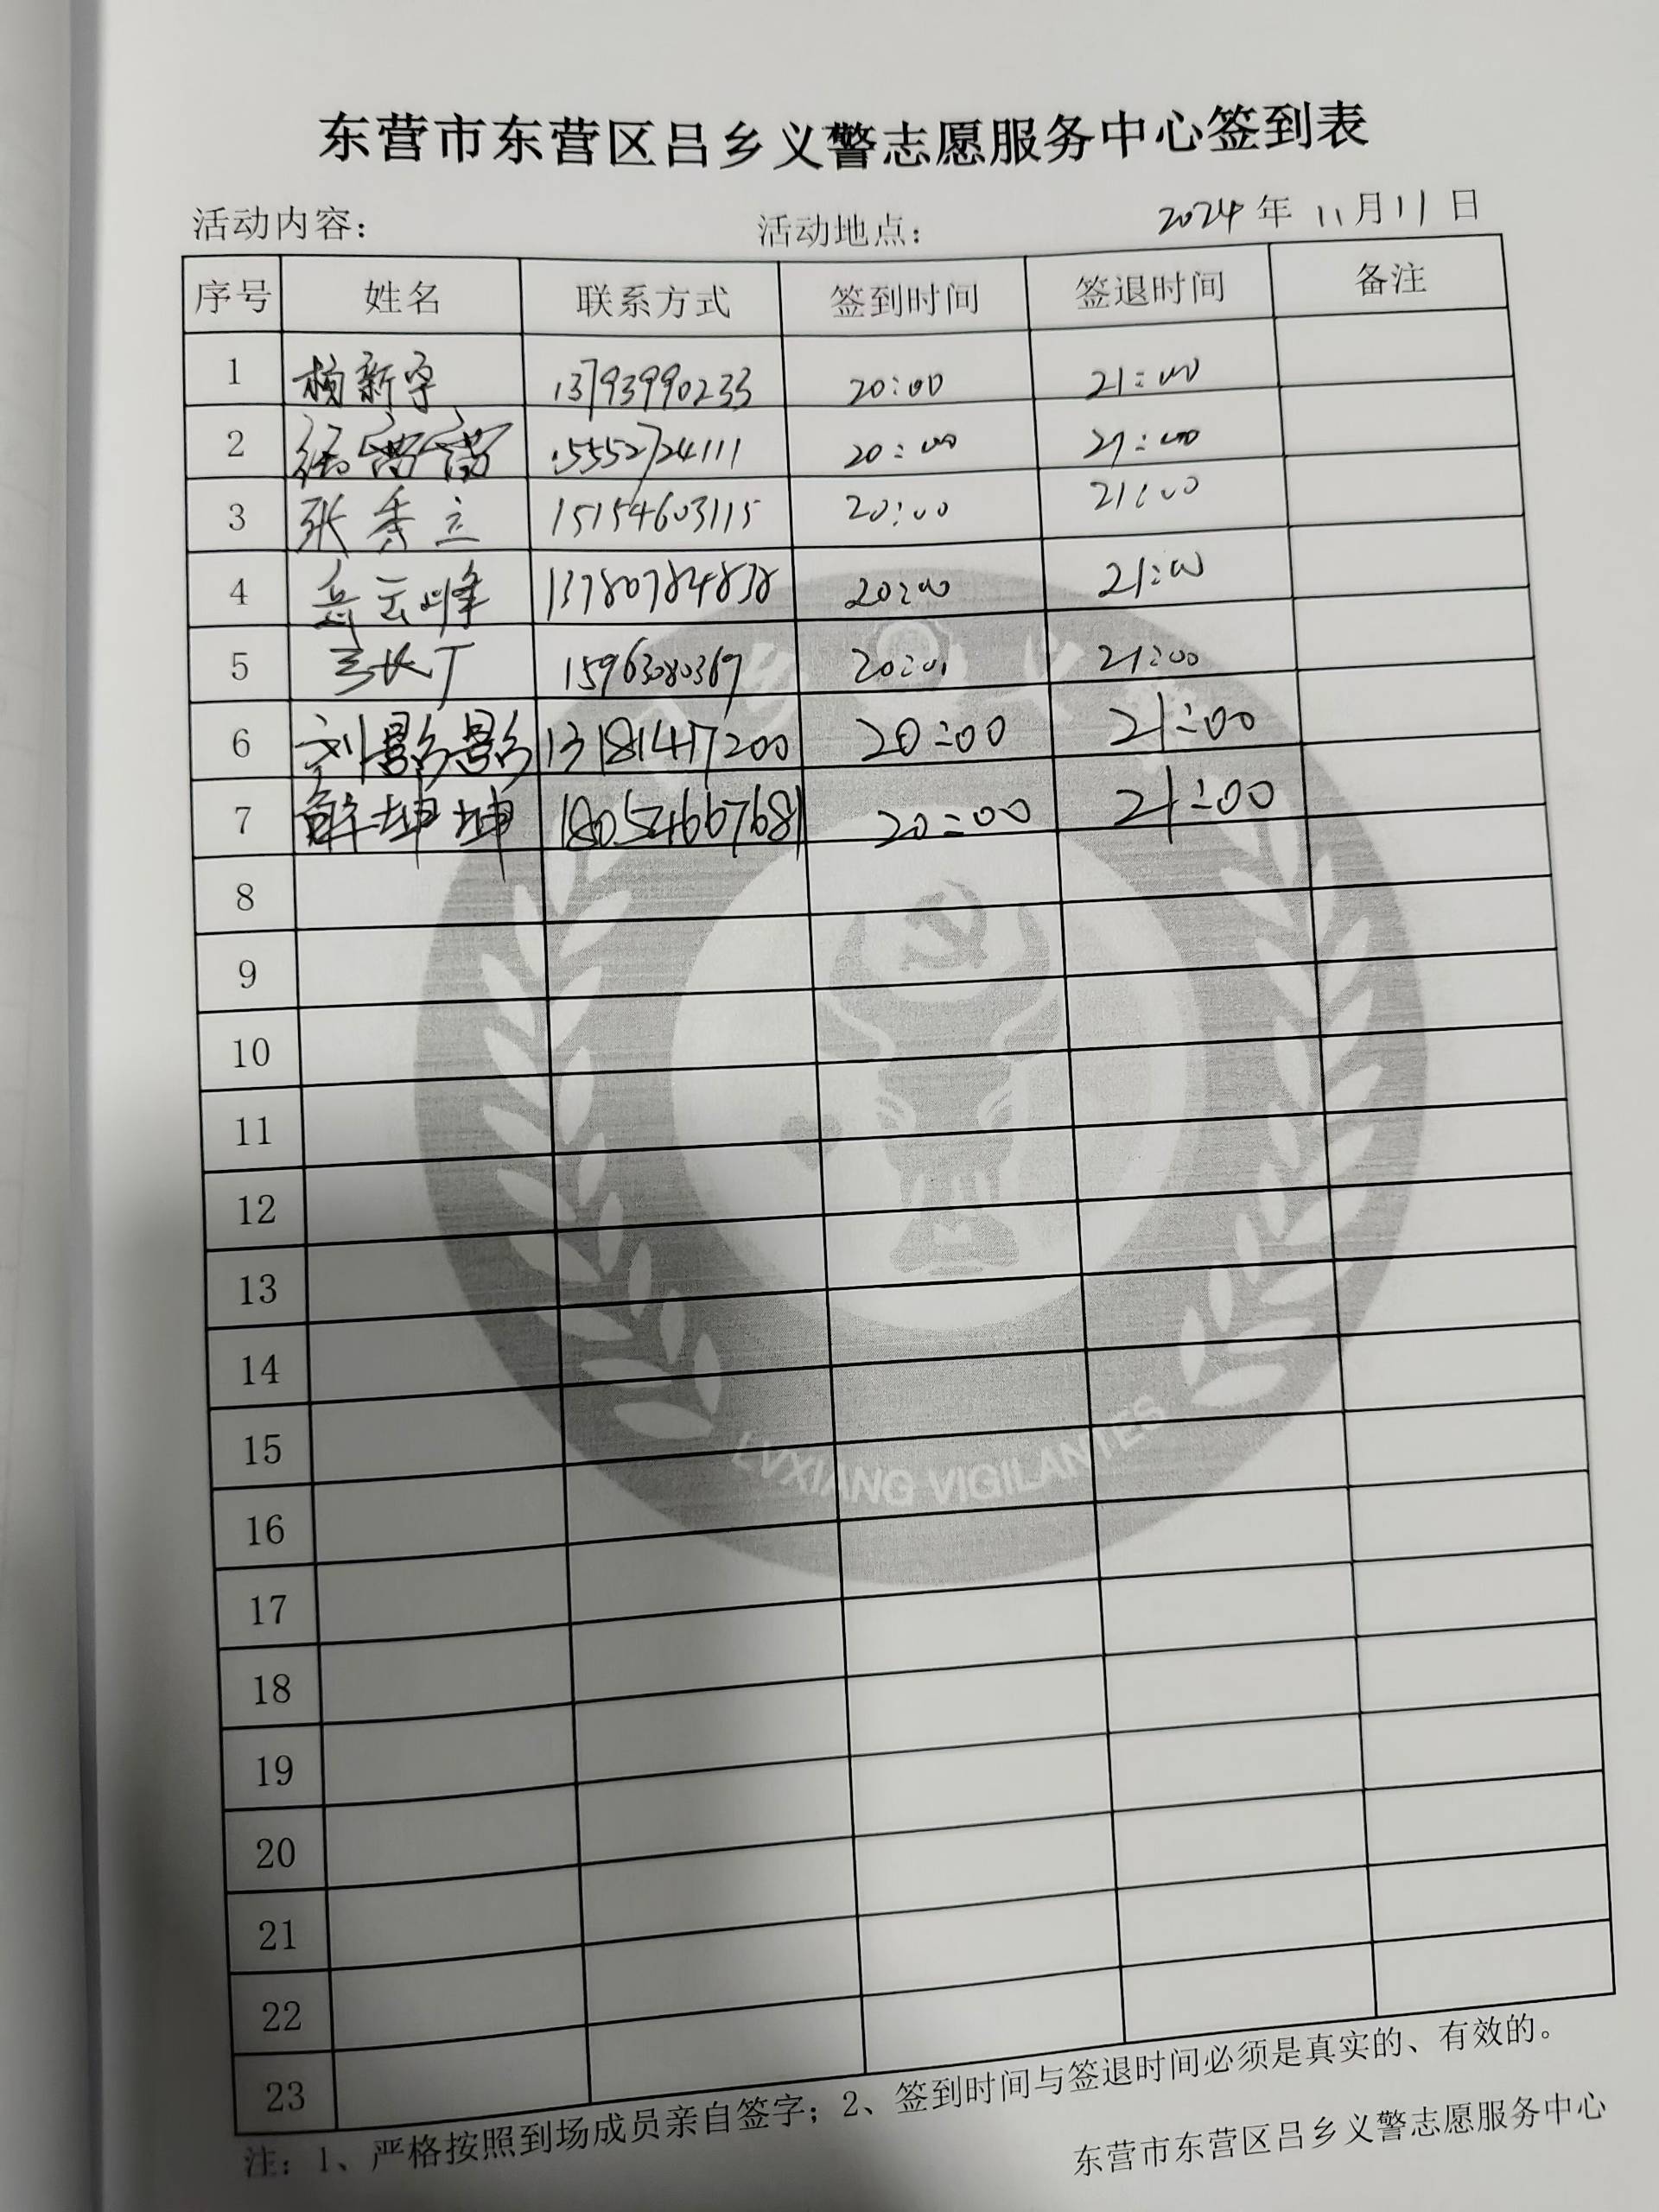 东营市东营区吕乡义警志愿服务中心签到表
活动内容： 活动地点： 2024年11月11日
序号 姓名 联系方式 签到时间 签退时间 备注
1 杨新宇 13793990233 20:00 21:00
2 15552724111 20:00 21:00
3 张秀立 15154603115 20:00 21:00
4 岳云峰 13780784838 20:00 21:00
5 15963080369 20:00 21:00
6 刘影影 13181417200 20:00 21:00
7 薛坤坤 18054667681 20:00 21:00
8
9
10
11
12
13
14
15
16
17
18
19
20
21
22
23
LVXIANG VIGILANTES
注：1、严格按照到场成员亲自签字；2、签到时间与签退时间必须是真实的、有效的。
东营市东营区吕乡义警志愿服务中心